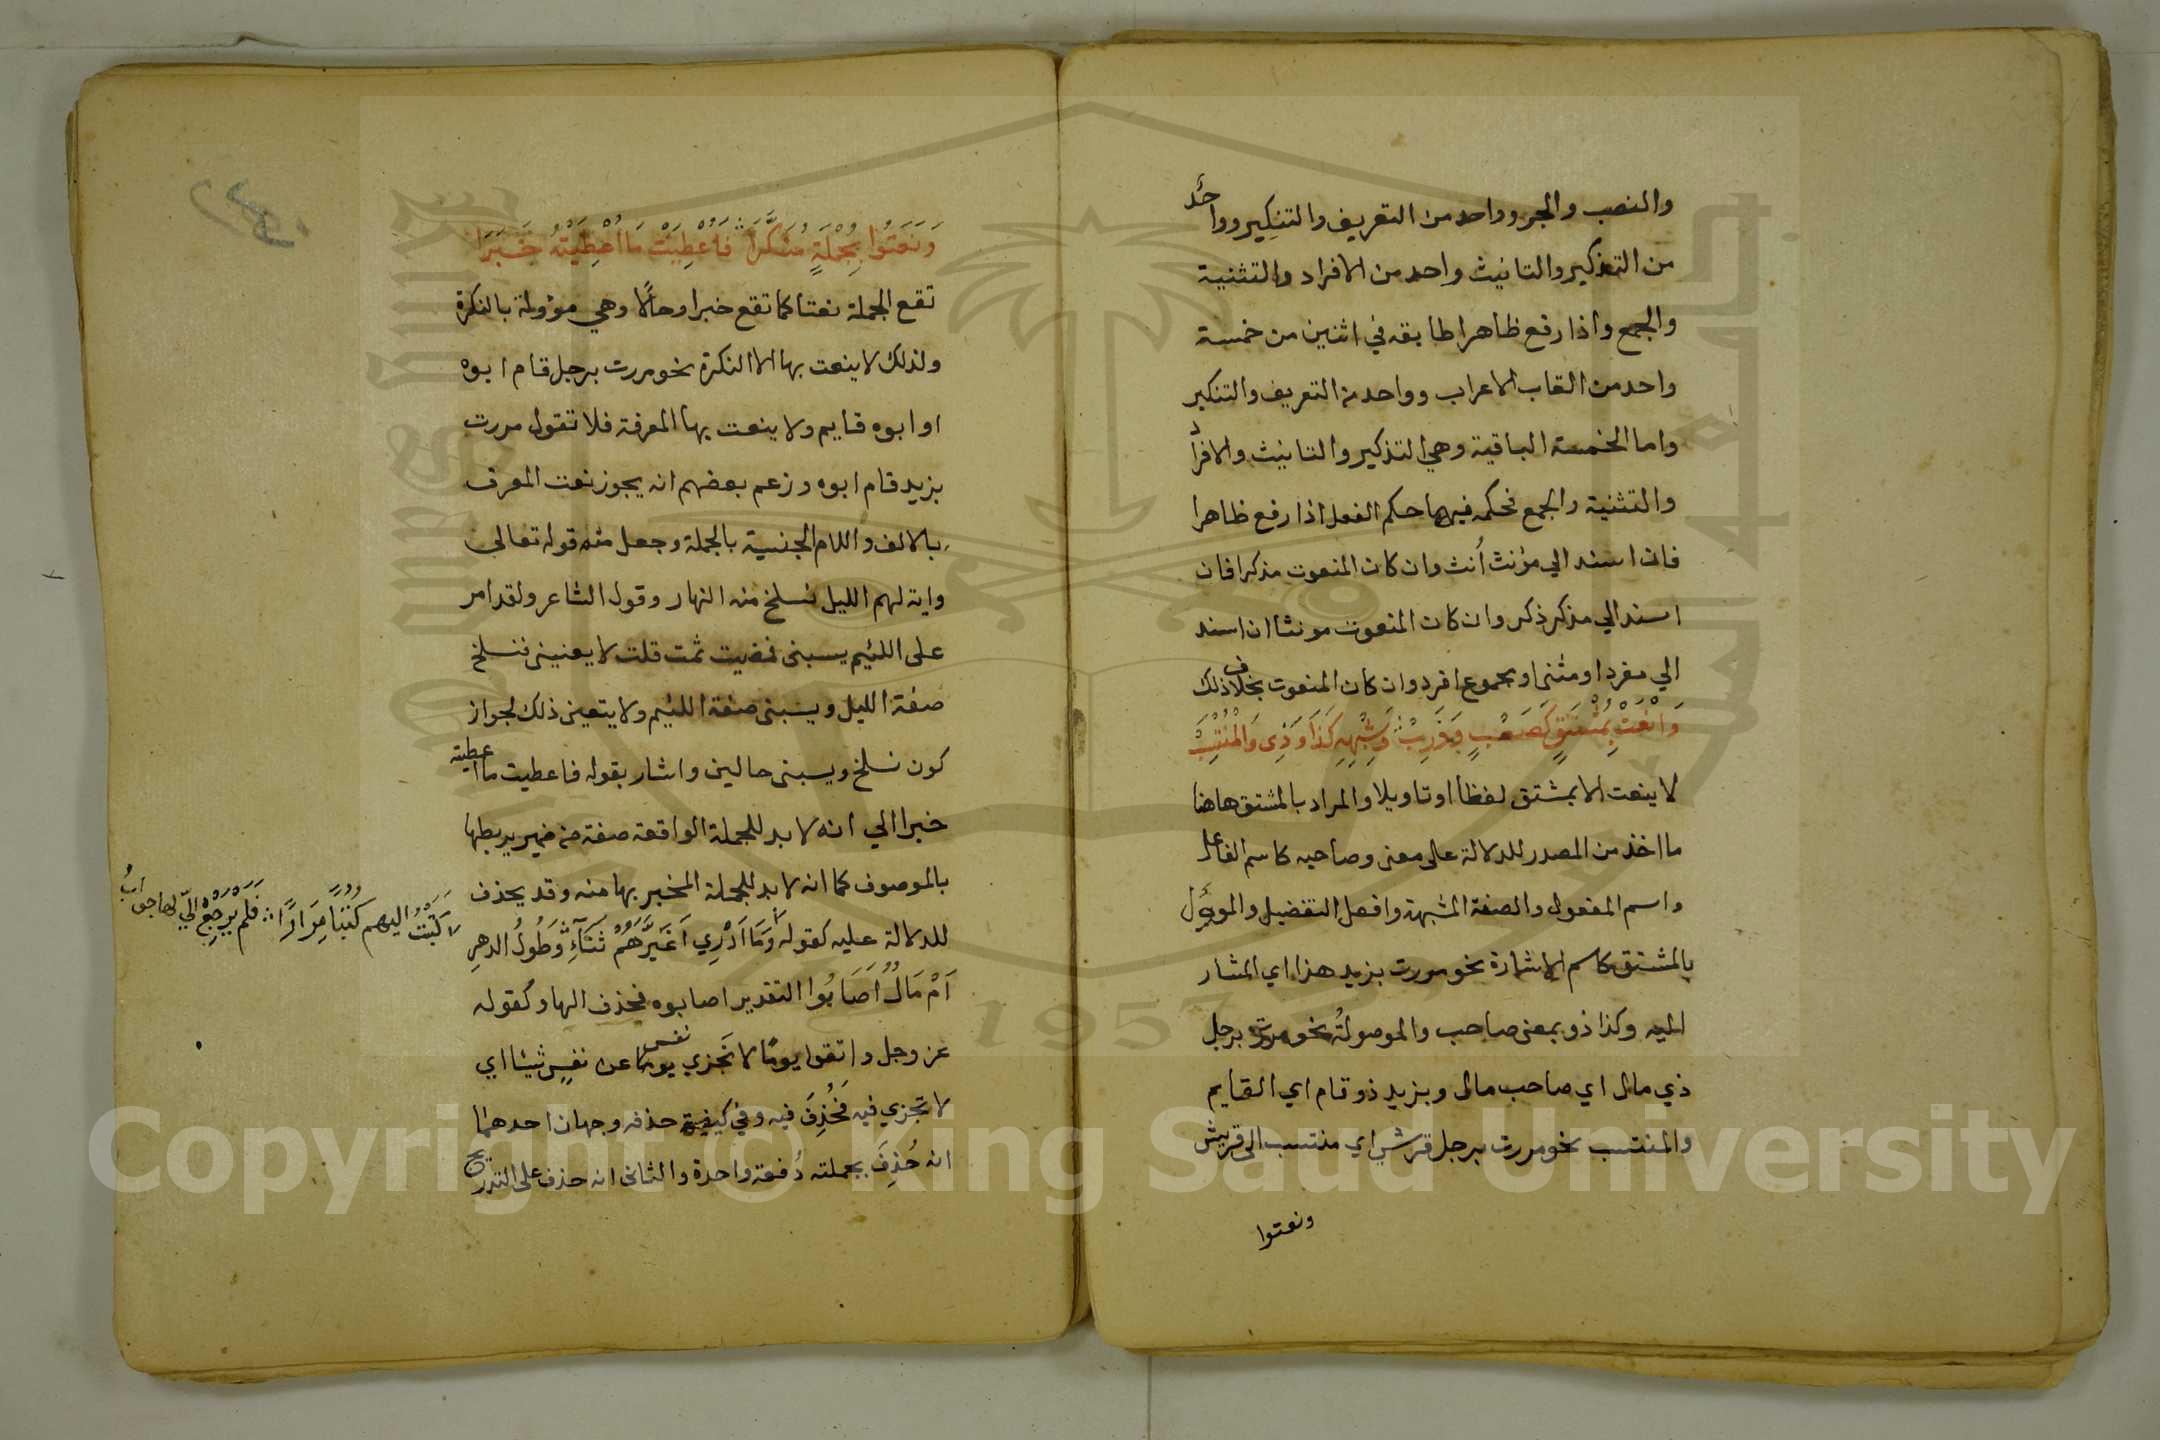 والنصب والجر وواحد من التعريف والتنكير وواحد
من التذكير والتانيث واحد من الافراد والتثنية
والجمع واذا رفع ظاهرا طابقه في اثنين من خمسة
واحد من القاب الاعراب وواحد من التعريف والتنكير
واما الخمسة الباقية وهي التذكير والتانيث والافراد
والتثنية والجمع فحكمه فيها حكم الفعل اذا رفع ظاهرا
فان اسند الي مؤنث أنث وان كان المنعوت مذكرا فان
اسند الي مذكر ذكر وان كان المنعوت مونثا ان اسند
الي مفرد او مثنى او مجموع افرد وان كان المنعوت بخلاف ذلك
وَانْعَتْ بِمُشْتَقٍّ كَصَعْبٍ وَذَرِبْ وَشِبْهِهِ كَذَا وَذِي وَالْمُنْتَسِبْ
لا ينعت الا بمشتق لفظا او تاويلا والمراد بالمشتق هاهنا
ما اخذ من المصدر للدلالة على معنى وصاحبه كاسم الفاعل
واسم المفعول والصفة المشبهة وافعل التفضيل والموؤل
بالمشتق كاسم الاشارة نحو مررت بزيد هذا اي المشار
اليه وكذا ذو بمعنى صاحب والموصولةُ نحو مررت برجل
ذي مال اي صاحب مال وبزيد ذو قام اي القايم
والمنتسب نحو مررت برجل قرشي اي منتسب الى قريش
ونعتوا
وَنَعَتُوا بِجُمْلَةٍ مُنَكَّرَا فَاُعْطِيَتْ مَا اُعْطِيَتْهُ خَبَرَا
تقع الجملة نعتا كما تقع خبرا وحالا وهي مؤولة بالنكرة
ولذلك لا ينعت بها الا النكرة نحو مررت برجل قام ابوه
او ابوه قايم ولا ينعت بها المعرفة فلا تقول مررت
بزيد قام ابوه وزعم بعضهم انه يجوز نعت المعرف
بالالف واللام الجنسية بالجملة وجعل منه قوله تعالى
واية لهم الليل نسلخ منه النهار وقول الشاعر ولقد امر
على اللئيم يسبنى فمضيت ثمت قلت لا يعنينى فنسلخ
صفة الليل ويسبنى صفة اللئيم ولا يتعين ذلك لجواز
كون نسلخ ويسبنى حالين واشار بقوله فاعطيت ما اعطيته
خبرا الي انه لا بد للجملة الواقعة صفة من ضمير يربطها
بالموصوف كما انه لا بد للجملة المخبر بها منه وقد يحذف
للدلالة عليه كقوله وَمَا اَدْرِي اَغَيَّرَهُمْ تَنَآءٍ وَطُولُ الدهرِ
اَمْ مَالٌ اَصَابُوا التقدير اصابوه فحذف الهاء وكقوله
عز وجل واتقوا يومًا لا تَجزي يوما نفس عن نفسٍ شيئا اي
لا تجزي فيه فَحُذِفَ فيه وفي كيفية حذفه وجهان احدهما
انه حُذِفَ بجملته دُفعة واحدة والثانى انه حذف على التدريج
كَتَبْتُ اليهم كُتُبًا مِرَارًا فَلَمْ يَرْجِعْ اِلَيّ لها جوابُ
Copyright © King Saud University
1957